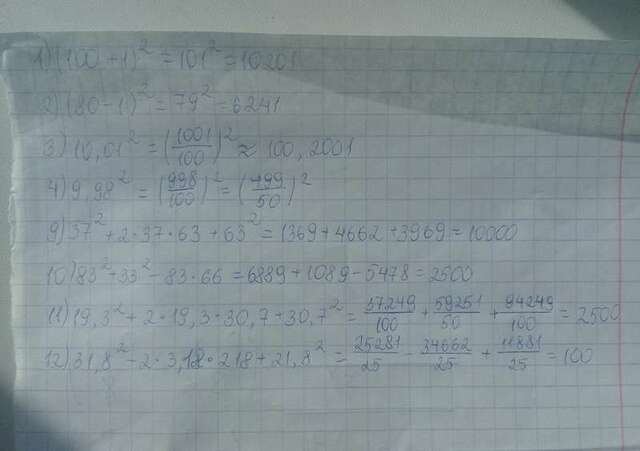 1) (100+1)² = 101² = 10201
2) (80-1)² = 79² = 6241
3) 10,01² = (1001/100)² ≈ 100,2001
4) 9,98² = (998/100)² = (499/50)²
9) 37² + 2·37·63 + 63² = 1369 + 4662 + 3969 = 10000
10) 83² + 33² - 83·66 = 6889 + 1089 - 5478 = 2500
11) 19,3² + 2·19,3·30,7 + 30,7² = 37249/100 + 59251/50 + 94249/100 = 2500
12) 31,8² - 2·3,18·218 + 21,8² = 25281/25 - 34662/25 + 11881/25 = 100